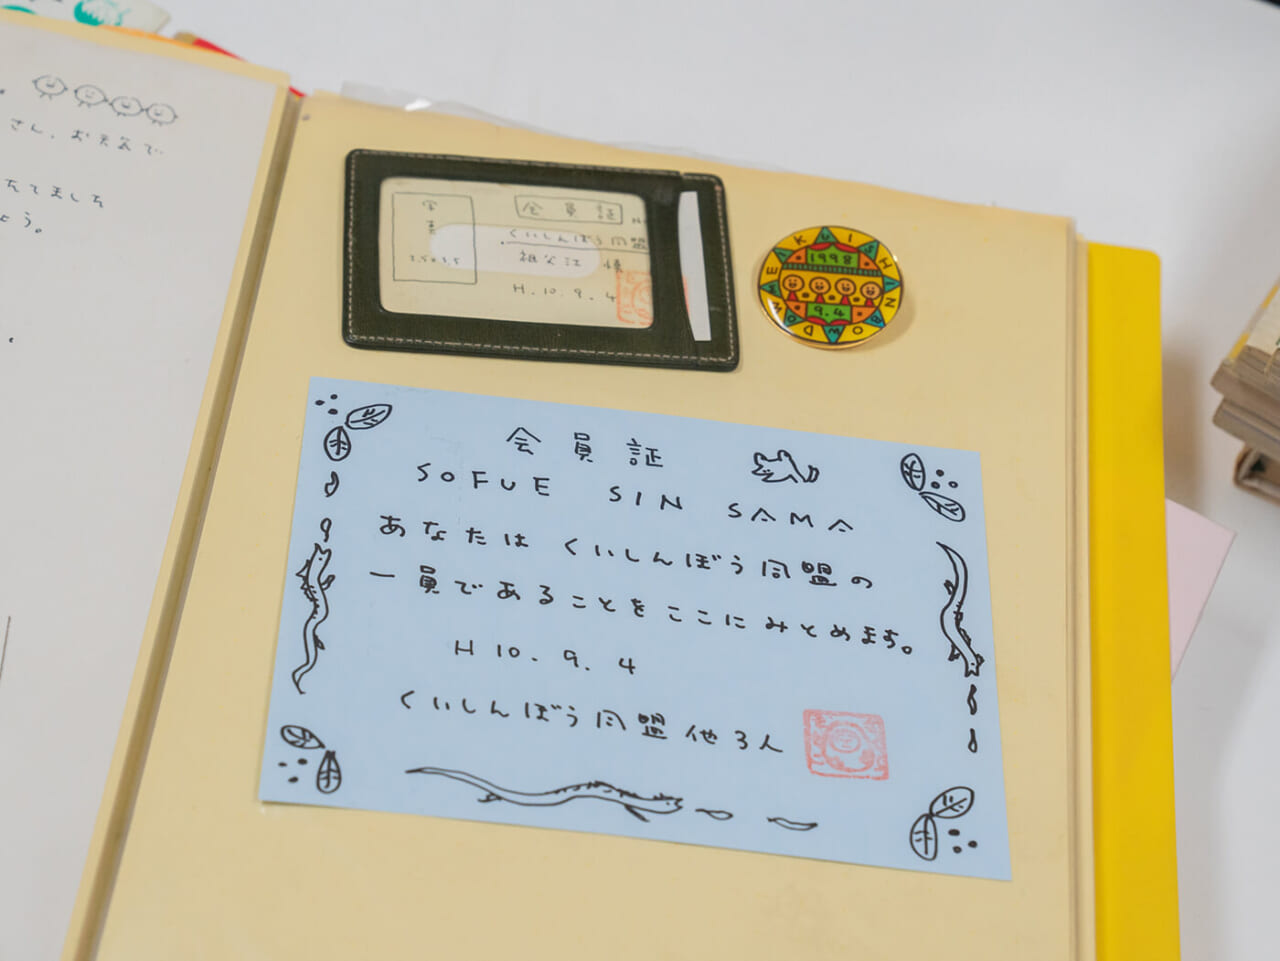 さん、お天気で
たてましを
ょう。
写真
会員証
くいしんぼう同盟
祖父江 慎
H.10.9.4
KUISHINBOW DOMMEI
1998
9.4
会員証
SOFUE SIN SAMA
あなたは くいしんぼう同盟の
一員であることを ここに みとめます。
H 10. 9. 4
くいしんぼう同盟 他3人